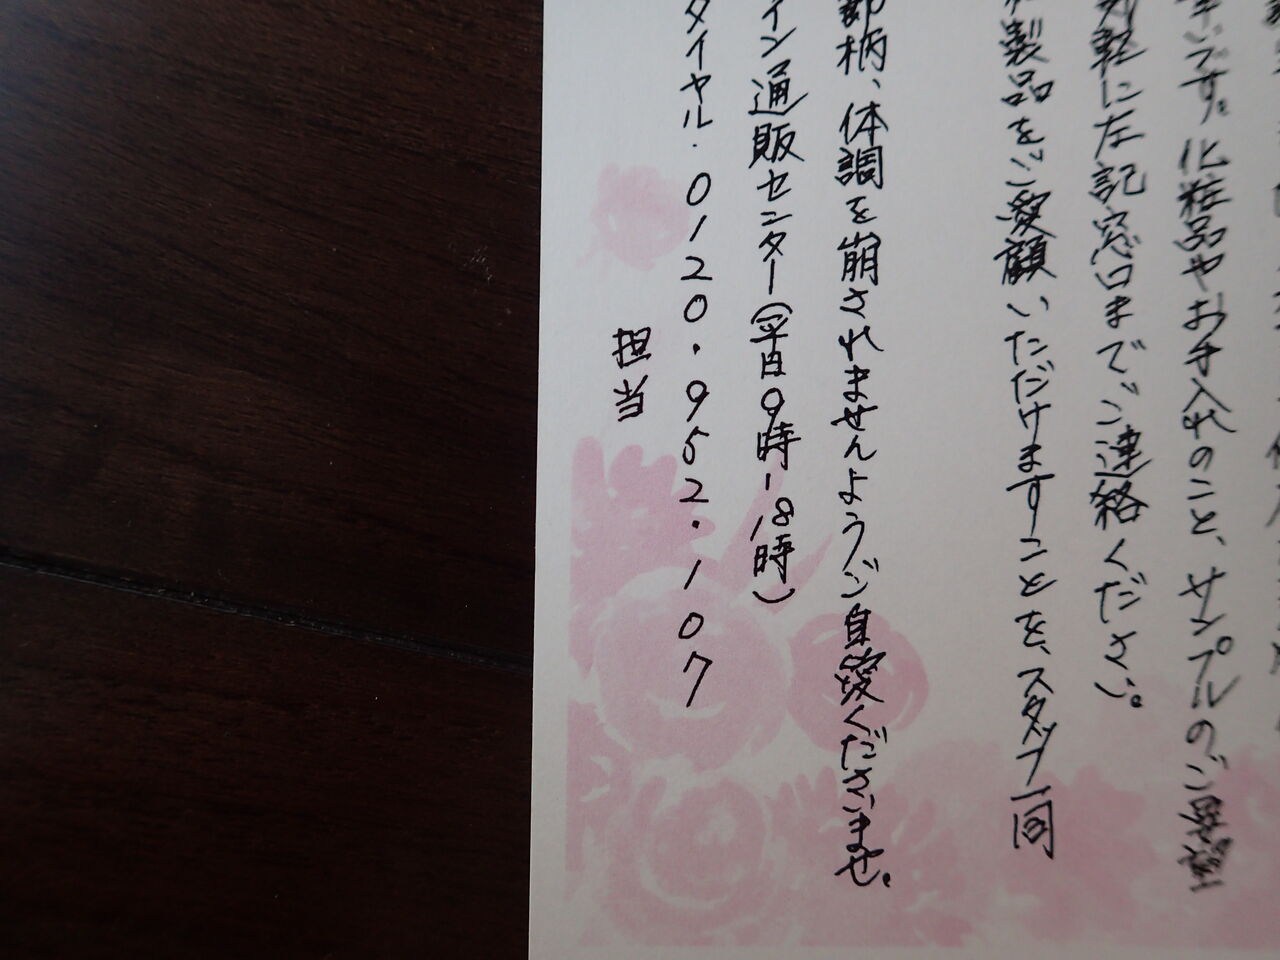 です。化粧品やお手入れのこと、サンプルのご要望
気軽に左記窓口までご連絡ください。
製品をご愛顧いただけますことを、スタッフ一同
節柄、体調を崩されませんようご自愛くださいませ。
イン通販センター(平日9時-18時)
ダイヤル・0120・952・107
担当